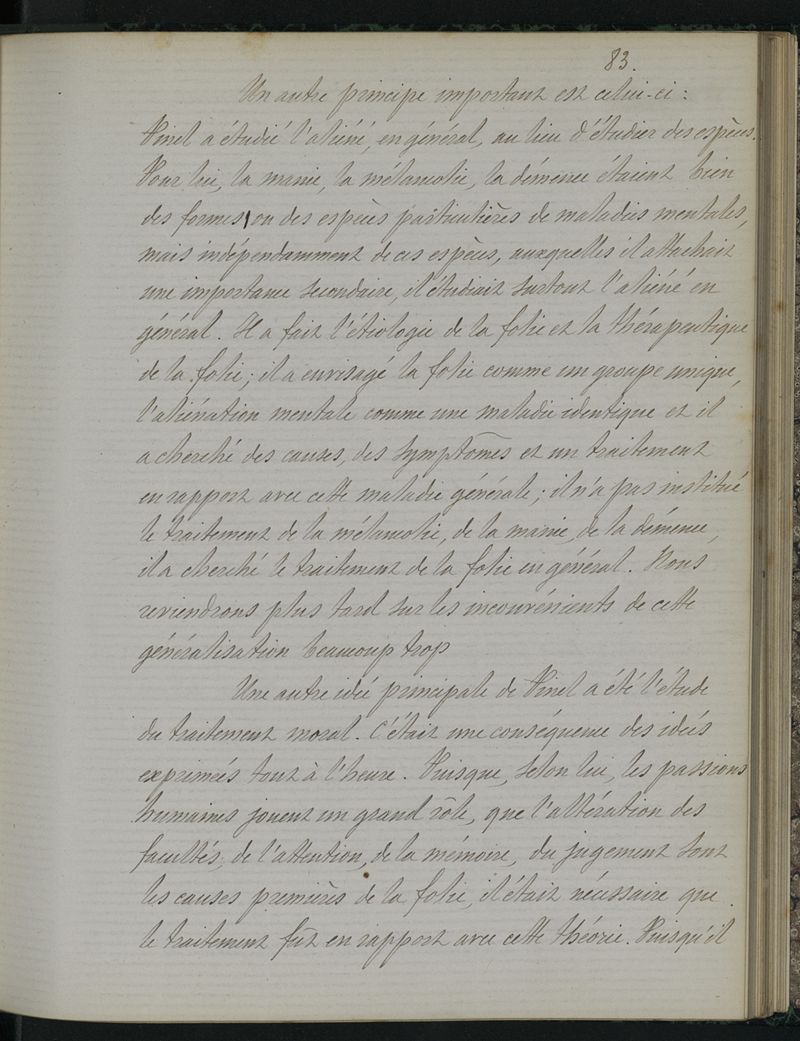 83.
Un autre principe important est celui-ci :
Pinel a étudié l'aliéné, en général, au lieu d'étudier des espèces.
Pour lui, la manie, la mélancolie, la démence étaient bien
des formes, ou des espèces particulières de maladies mentales,
mais indépendamment de ces espèces, auxquelles il attachait
une importance secondaire, il étudiait surtout l'aliéné en
général. Il a fait l'étiologie de la folie et la thérapeutique
de la folie ; il a envisagé la folie comme un groupe unique,
l'aliénation mentale comme une maladie identique et il
a cherché des causes, des symptômes et un traitement
en rapport avec cette maladie générale ; il n'a pas institué
le traitement de la mélancolie, de la manie, de la démence,
il a cherché le traitement de la folie en général. Nous
reviendrons plus tard sur les inconvénients de cette
généralisation beaucoup trop
Une autre idée principale de Pinel a été l'étude
du traitement moral. C'était une conséquence des idées
exprimées tout à l'heure. Puisque, selon lui, les passions
humaines jouent un grand rôle, que l'altération des
facultés, de l'attention, de la mémoire, du jugement sont
les causes premières de la folie, il était nécessaire que
le traitement fût en rapport avec cette théorie. Puisqu'il